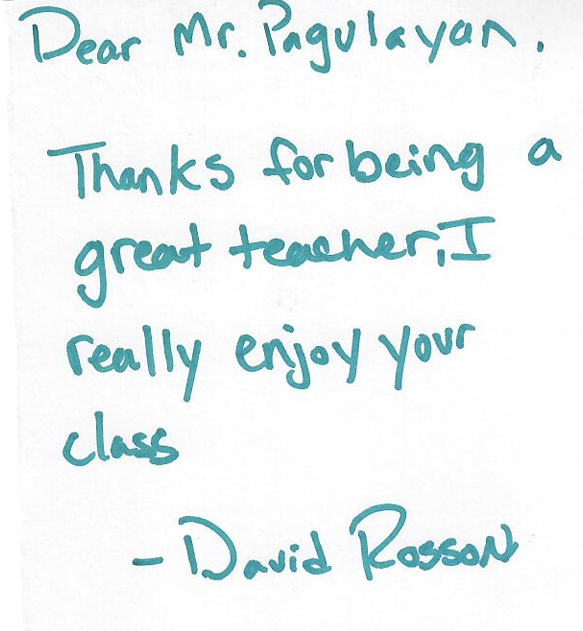 Dear Mr. Pagulayan.
Thanks for being a
great teacher, I
really enjoy your
class
- David Rosson